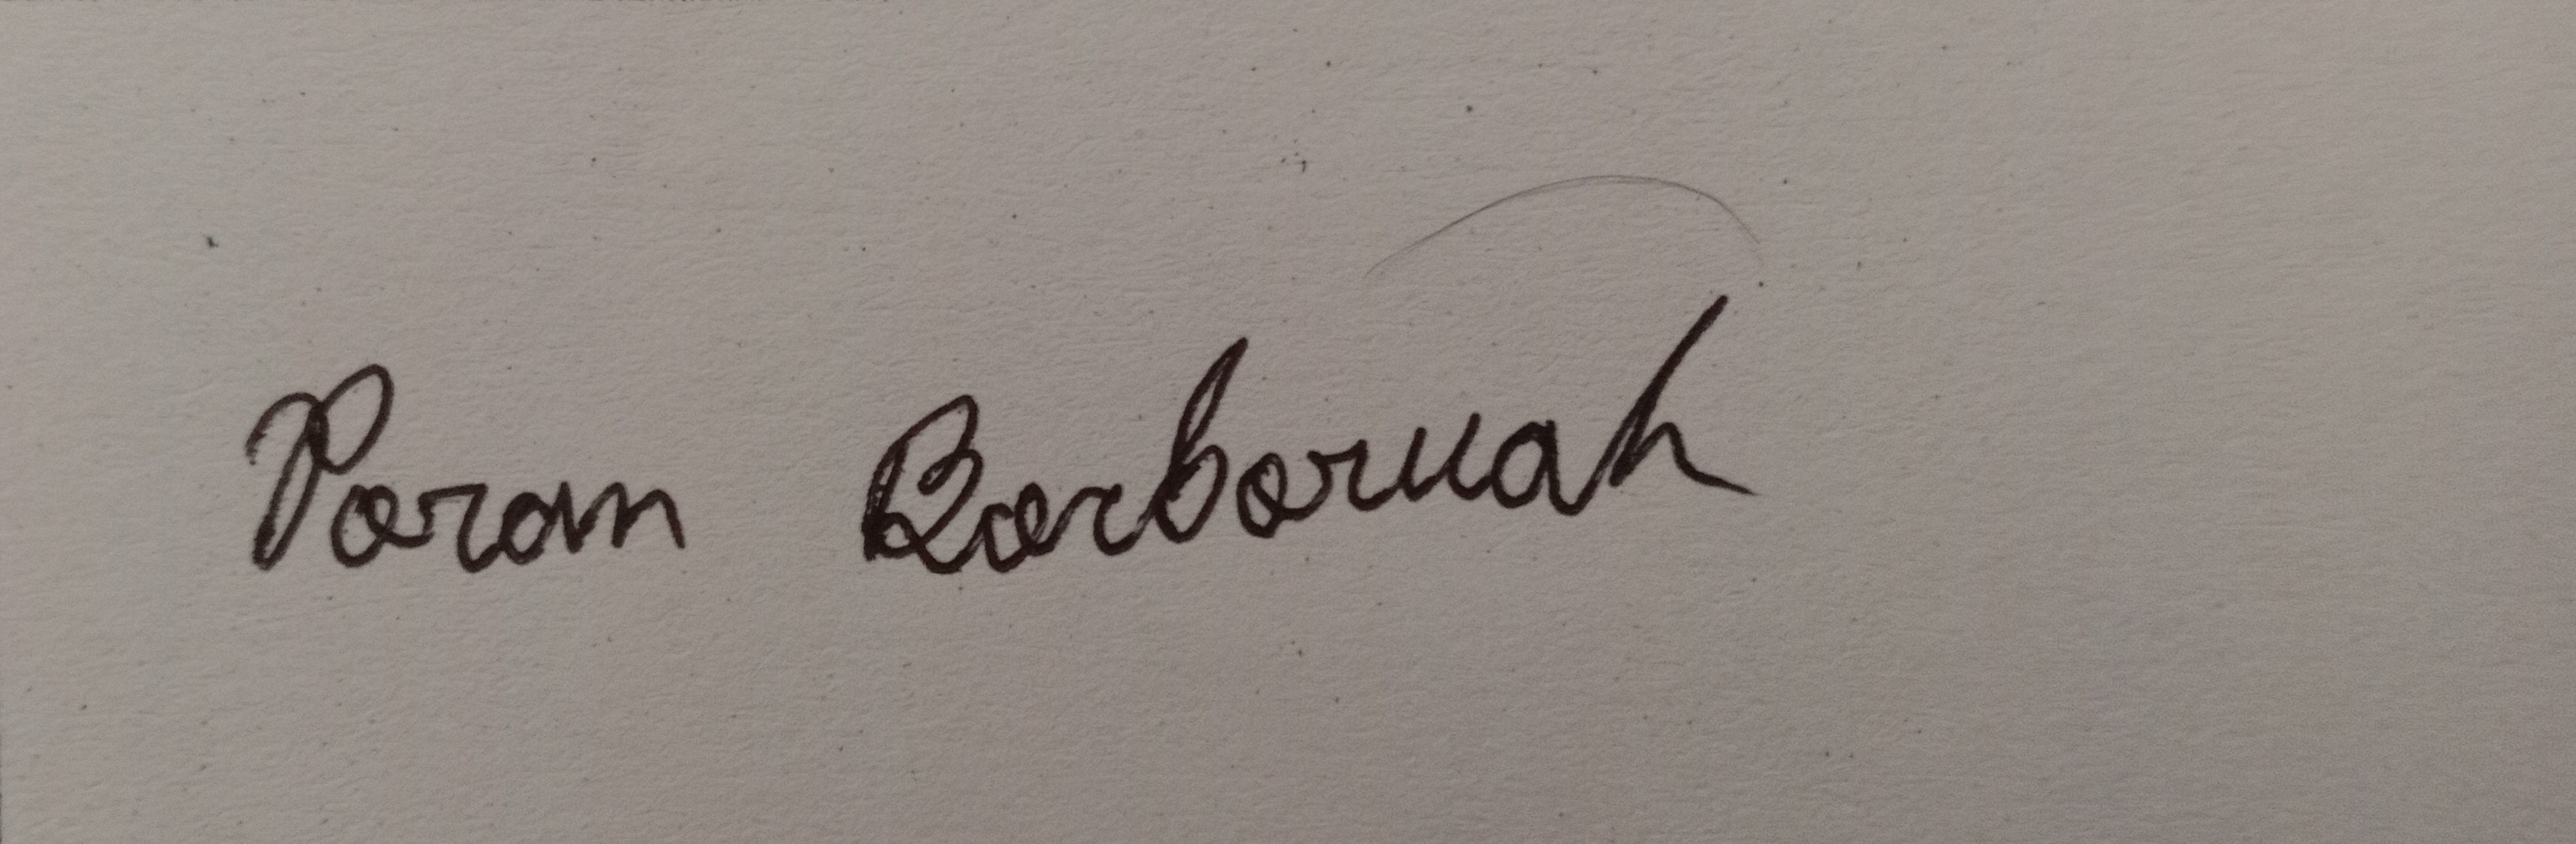 Param Borboruah